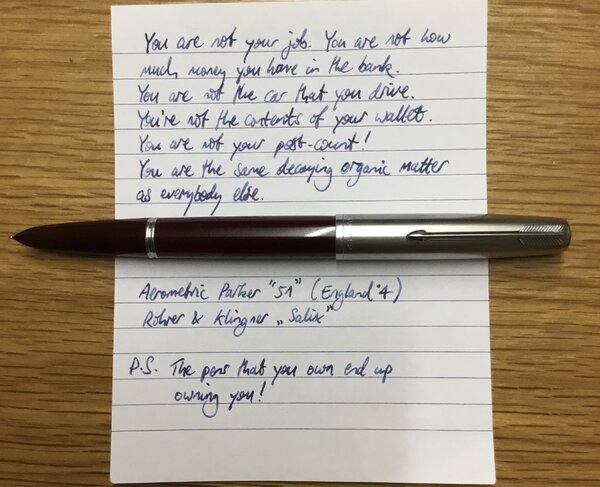 You are not your job. You are not how
much money you have in the bank.
You are not the car that you drive.
You're not the contents of your wallet.
You are not your post-count!
You are the same decaying organic matter
as everybody else.
Aerometric Parker "51" (England '4)
Rohrer & Klingner „Salix"
P.S. The pens that you own end up
owning you!